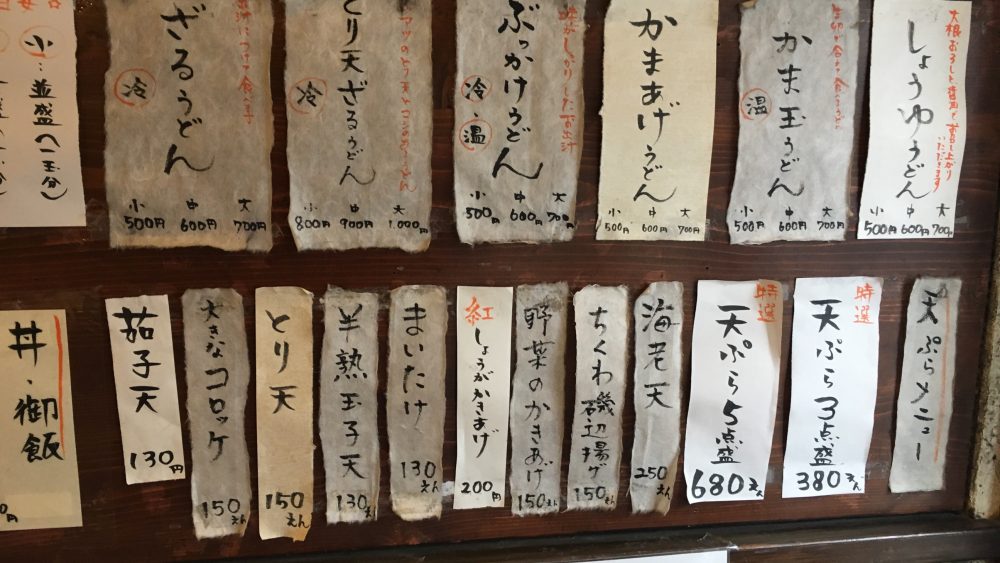 しょうゆうどん
大根おろしと醤油でお召し上がり
いただきます
小 中 大
500円 600円 700円
かま玉うどん
温
小 中 大
500円 600円 700円
かまあげうどん
小 中 大
500円 600円 700円
ぶっかけうどん
冷・温
小 中 大
500円 600円 700円
とり天ざるうどん
冷
小 中 大
800円 900円 1,000円
ざるうどん
冷
小 中 大
500円 600円 700円
小…並盛(一玉分)
天ぷらメニュー
特選
天ぷら3点盛
380えん
特選
天ぷら5点盛
680えん
海老天
250えん
ちくわ磯辺揚げ
150えん
野菜のかきあげ
150えん
紅しょうがかきあげ
200円
まいたけ
130えん
半熟玉子天
130えん
とり天
150えん
大きなコロッケ
150えん
茄子天
130円
丼・御飯